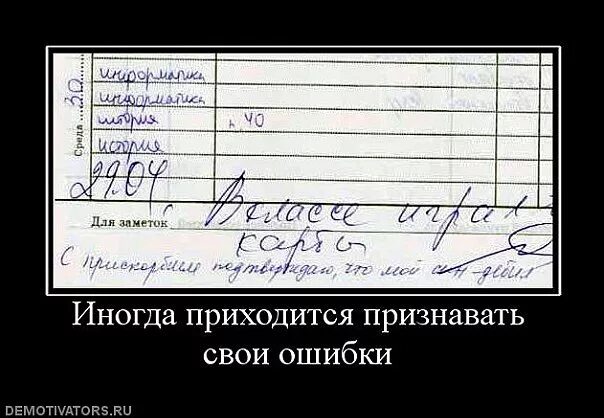 Среда ......30
информатика
информатика
история п.40
история
29.04
Для заметок В классе играл в
карты
С прискорбием подтверждаю, что мой сын-дебил
Иногда приходится признавать
свои ошибки
DEMOTIVATORS.RU